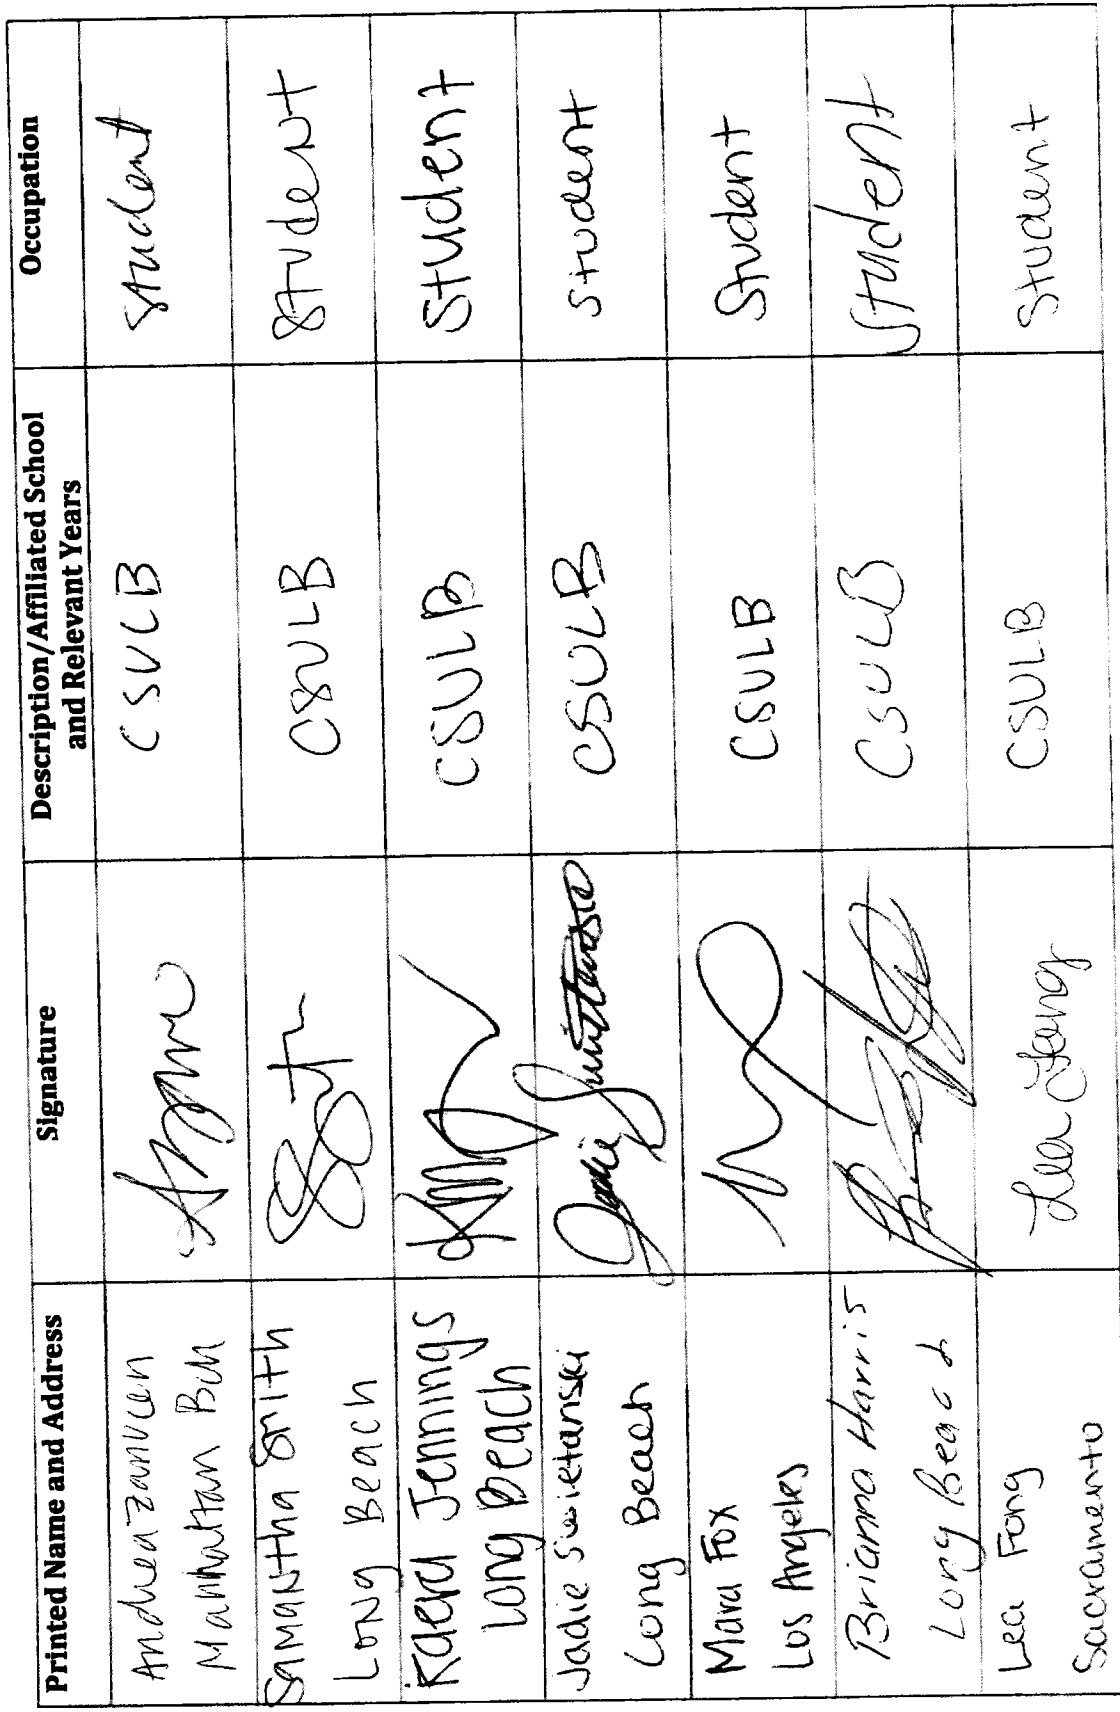 Printed Name and Address
Signature
Description/Affiliated School
and Relevant Years
Occupation
Andrea
Manhattan Bch
CSULB
Student
SAMANtha SmITH
LONg BEACH
CSULB
StudeNt
Jennings
Long Beach
CSULB
Student
Jadie Swietanski
Long Beach
Jadie
CSULB
Student
Mara Fox
Los Angeles
CSULB
Student
Brianna Harris
Long Beach
CSULB
Student
Lea Fong
Sacramento
Lea Fong
CSULB
Student